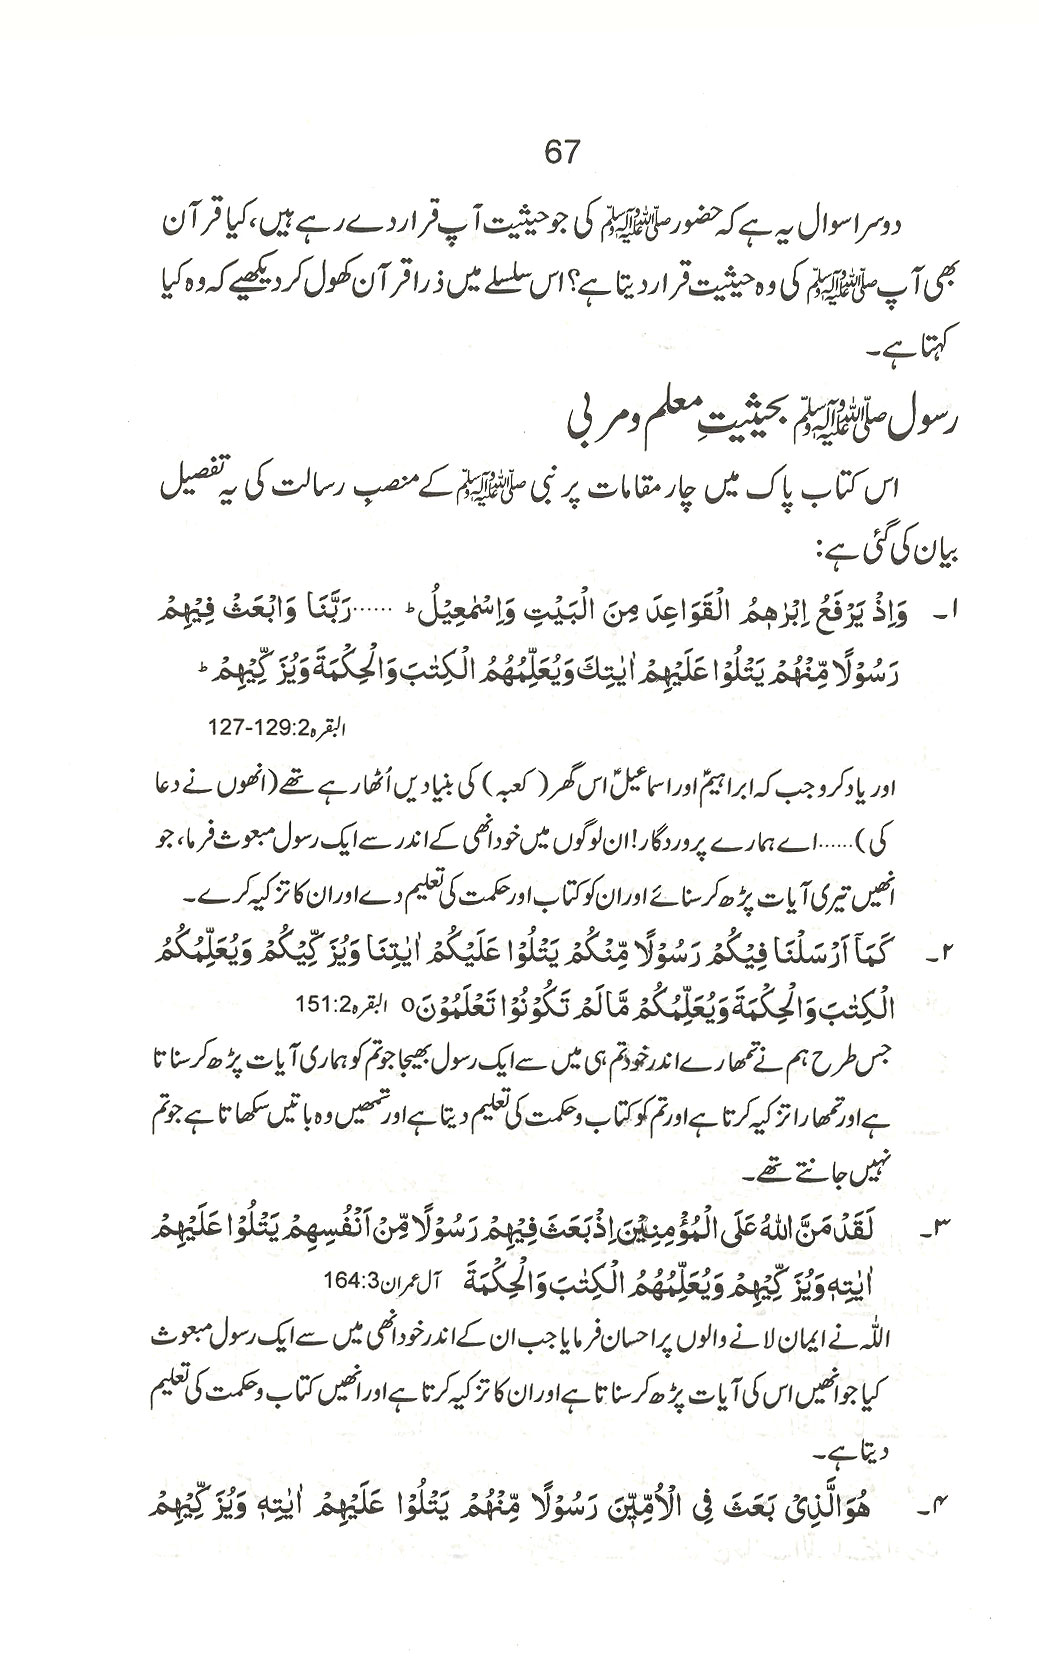 67
دوسرا سوال یہ ہے کہ حضور ﷺ کی جو حیثیت آپ قرار دے رہے ہیں، کیا قرآن
بھی آپ ﷺ کی وہ حیثیت قرار دیتا ہے؟ اس سلسلے میں ذرا قرآن کھول کر دیکھیے کہ وہ کیا
کہتا ہے۔
رسول ﷺ بحیثیتِ معلم و مربی
اس کتاب پاک میں چار مقامات پر نبی ﷺ کے منصبِ رسالت کی یہ تفصیل
بیان کی گئی ہے:
۱۔ وَاِذْ يَرْفَعُ اِبْرٰهٖمُ الْقَوَاعِدَ مِنَ الْبَيْتِ وَاِسْمٰعِيْلُ ؕ ...... رَبَّنَا وَابْعَثْ فِيْهِمْ
رَسُوْلًا مِّنْهُمْ يَتْلُوْا عَلَيْهِمْ اٰيٰتِكَ وَيُعَلِّمُهُمُ الْكِتٰبَ وَالْحِكْمَةَ وَيُزَكِّيْهِمْ ؕ
البقرہ 2:129-127
اور یاد کرو جب کہ ابراہیمؑ اور اسماعیلؑ اس گھر (کعبہ) کی بنیادیں اُٹھا رہے تھے (انھوں نے دعا
کی)...... اے ہمارے پروردگار! ان لوگوں میں خود انھی کے اندر سے ایک رسول مبعوث فرما، جو
انھیں تیری آیات پڑھ کر سنائے اور ان کو کتاب اور حکمت کی تعلیم دے اور ان کا تزکیہ کرے۔
۲۔ كَمَآ اَرْسَلْنَا فِيْكُمْ رَسُوْلًا مِّنْكُمْ يَتْلُوْا عَلَيْكُمْ اٰيٰتِنَا وَيُزَكِّيْكُمْ وَيُعَلِّمُكُمُ
الْكِتٰبَ وَالْحِكْمَةَ وَيُعَلِّمُكُمْ مَّا لَمْ تَكُوْنُوْا تَعْلَمُوْنَ o البقرہ 2:151
جس طرح ہم نے تمھارے اندر خود تم ہی میں سے ایک رسول بھیجا جو تم کو ہماری آیات پڑھ کر سناتا
ہے اور تمھارا تزکیہ کرتا ہے اور تم کو کتاب و حکمت کی تعلیم دیتا ہے اور تمھیں وہ باتیں سکھاتا ہے جو تم
نہیں جانتے تھے۔
۳۔ لَقَدْ مَنَّ اللّٰهُ عَلَى الْمُؤْمِنِيْنَ اِذْ بَعَثَ فِيْهِمْ رَسُوْلًا مِّنْ اَنْفُسِهِمْ يَتْلُوْا عَلَيْهِمْ
اٰيٰتِهٖ وَيُزَكِّيْهِمْ وَيُعَلِّمُهُمُ الْكِتٰبَ وَالْحِكْمَةَ آل عمران 3:164
اللہ نے ایمان لانے والوں پر احسان فرمایا جب ان کے اندر خود انھی میں سے ایک رسول مبعوث
کیا جو انھیں اس کی آیات پڑھ کر سناتا ہے اور ان کا تزکیہ کرتا ہے اور انھیں کتاب و حکمت کی تعلیم
دیتا ہے۔
۴۔ هُوَ الَّذِيْ بَعَثَ فِي الْاُمِّيّٖنَ رَسُوْلًا مِّنْهُمْ يَتْلُوْا عَلَيْهِمْ اٰيٰتِهٖ وَيُزَكِّيْهِمْ